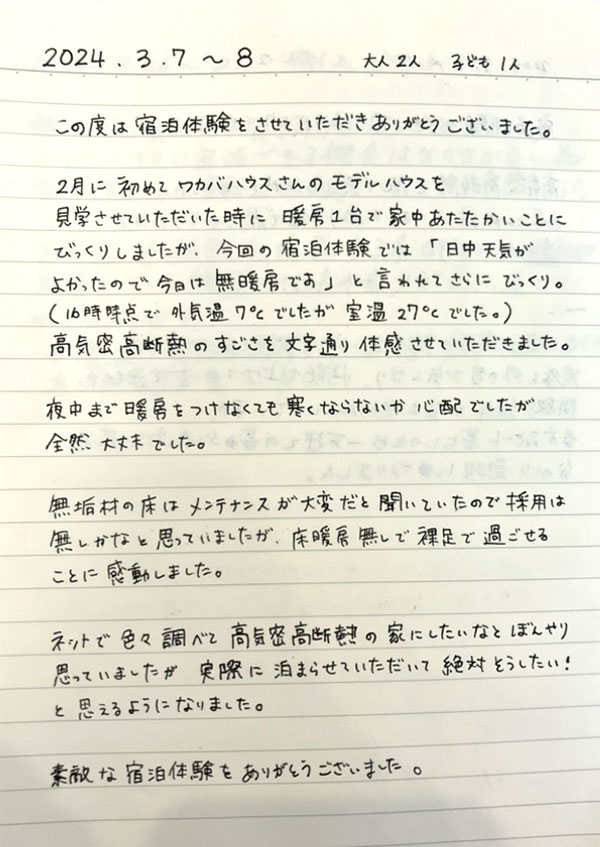 2024.3.7〜8 大人2人 子ども1人
この度は宿泊体験をさせていただきありがとうございました。
2月に初めてワカバハウスさんのモデルハウスを
見学させていただいた時に暖房1台で家中あたたかいことに
びっくりしましたが、今回の宿泊体験では「日中天気が
よかったので今日は無暖房です」と言われてさらにびっくり。
(16時時点で外気温7℃でしたが室温27℃でした。)
高気密高断熱のすごさを文字通り体感させていただきました。
夜中まで暖房をつけなくても寒くならないか心配でしたが
全然大丈夫でした。
無垢材の床はメンテナンスが大変だと聞いていたので採用は
無しかなと思っていましたが、床暖房無しで裸足で過ごせる
ことに感動しました。
ネットで色々調べて高気密高断熱の家にしたいなとぼんやり
思っていましたが実際に泊まらせていただいて絶対そうしたい!
と思えるようになりました。
素敵な宿泊体験をありがとうございました。